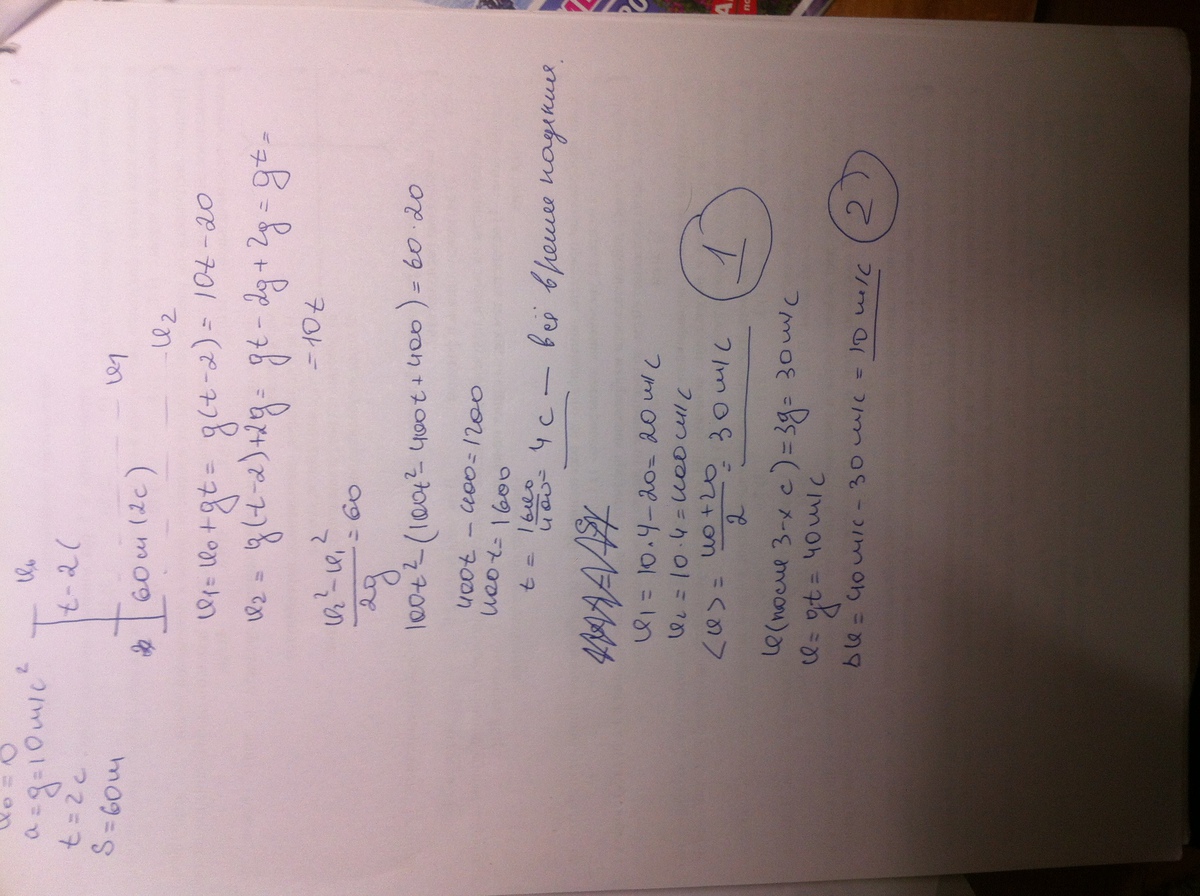 υ₀ = 0
a = g = 10 м/с²
t = 2 с
S = 60 м
υ₀
t - 2 с
60 м (2 с)
υ₁
υ₂
υ₁ = υ₀ + gt = g(t - 2) = 10t - 20
υ₂ = g(t - 2) + 2g = gt - 2g + 2g = gt =
= 10t
(υ₂² - υ₁²) / 2g = 60
100t² - (100t² - 400t + 400) = 60 · 20
400t - 400 = 1200
400t = 1600
t = 1600/400 = 4 с — всё время падения.
υ₁ = 10 · 4 - 20 = 20 м/с
υ₂ = 10 · 4 = 400 м/с
<υ> = (40 + 20)/2 = 30 м/с
1
υ (после 3-х с) = 3g = 30 м/с
υ = gt = 40 м/с
Δυ = 40 м/с - 30 м/с = 10 м/с
2)